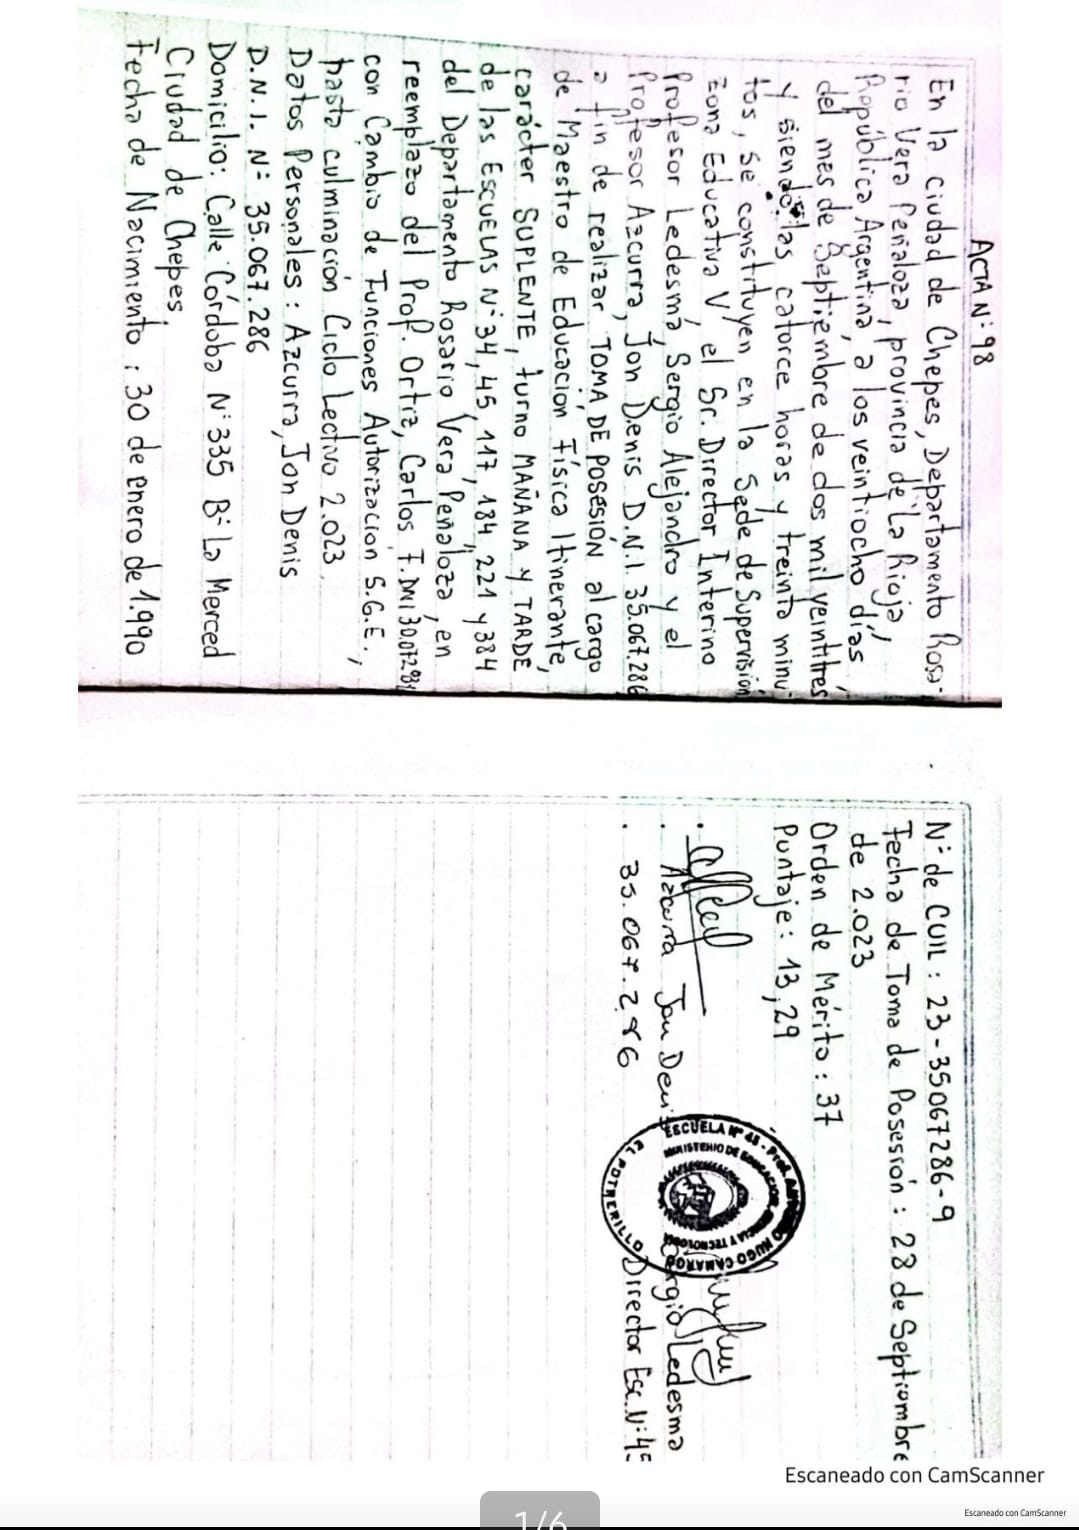 ACTA N:98
En la ciudad de Chepes, Departamento Rosa-
rio Vera Peñaloza, provincia de La Rioja,
República Argentina, a los veintiocho días
del mes de Septiembre de dos mil veintitrés
y siendo las catorce horas y treinta minu-
tos, se constituyen en la Sede de Supervisión
Zona Educativa V, el Sr. Director Interino
Profesor Ledesma, Sergio Alejandro y el
Profesor Azcurra, Jon Denis D.N.I. 35.067.286
a fin de realizar TOMA DE POSESIÓN al cargo
de Maestro de Educación Física Itinerante,
carácter SUPLENTE, turno MAÑANA y TARDE
de las ESCUELAS N:34, 45, 117, 184, 221 y 384
del Departamento Rosario Vera Peñaloza, en
reemplazo del Prof. Ortiz, Carlos F. DNI
con Cambio de Funciones Autorización S.G.E.,
hasta culminación Ciclo Lectivo 2.023.
Datos Personales: Azcurra, Jon Denis
D.N.I. N: 35.067.286
Domicilio: Calle Córdoba N:335 B: La Merced
Ciudad de Chepes.
Fecha de Nacimiento: 30 de Enero de 1.990
N: de CUIL: 23-35067286-9
Fecha de Toma de Posesión: 28 de Septiembre
de 2.023
Orden de Mérito: 37
Puntaje: 13,29
Azcurra Jon Denis
35.067.286
ESCUELA N° 45 - Prof. HUGO CAMARGO
MINISTERIO DE EDUCACION CIENCIA Y TECNOLOGIA
EL POTRERILLO
Sergio Ledesma
Director Esc. N:45
Escaneado con CamScanner
Escaneado con CamScanner
1/6